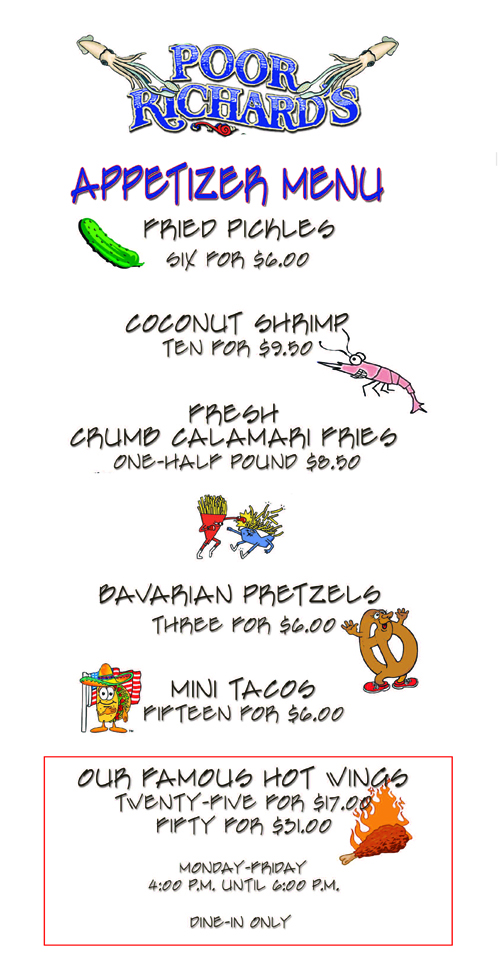 POOR
RICHARD'S
APPETIZER MENU
FRIED PICKLES
SIX FOR $6.00
COCONUT SHRIMP
TEN FOR $9.50
FRESH
CRUMB CALAMARI FRIES
ONE-HALF POUND $8.50
BAVARIAN PRETZELS
THREE FOR $6.00
MINI TACOS
FIFTEEN FOR $6.00
OUR FAMOUS HOT WINGS
TWENTY-FIVE FOR $17.00
FIFTY FOR $31.00
MONDAY-FRIDAY
4:00 P.M. UNTIL 6:00 P.M.
DINE-IN ONLY